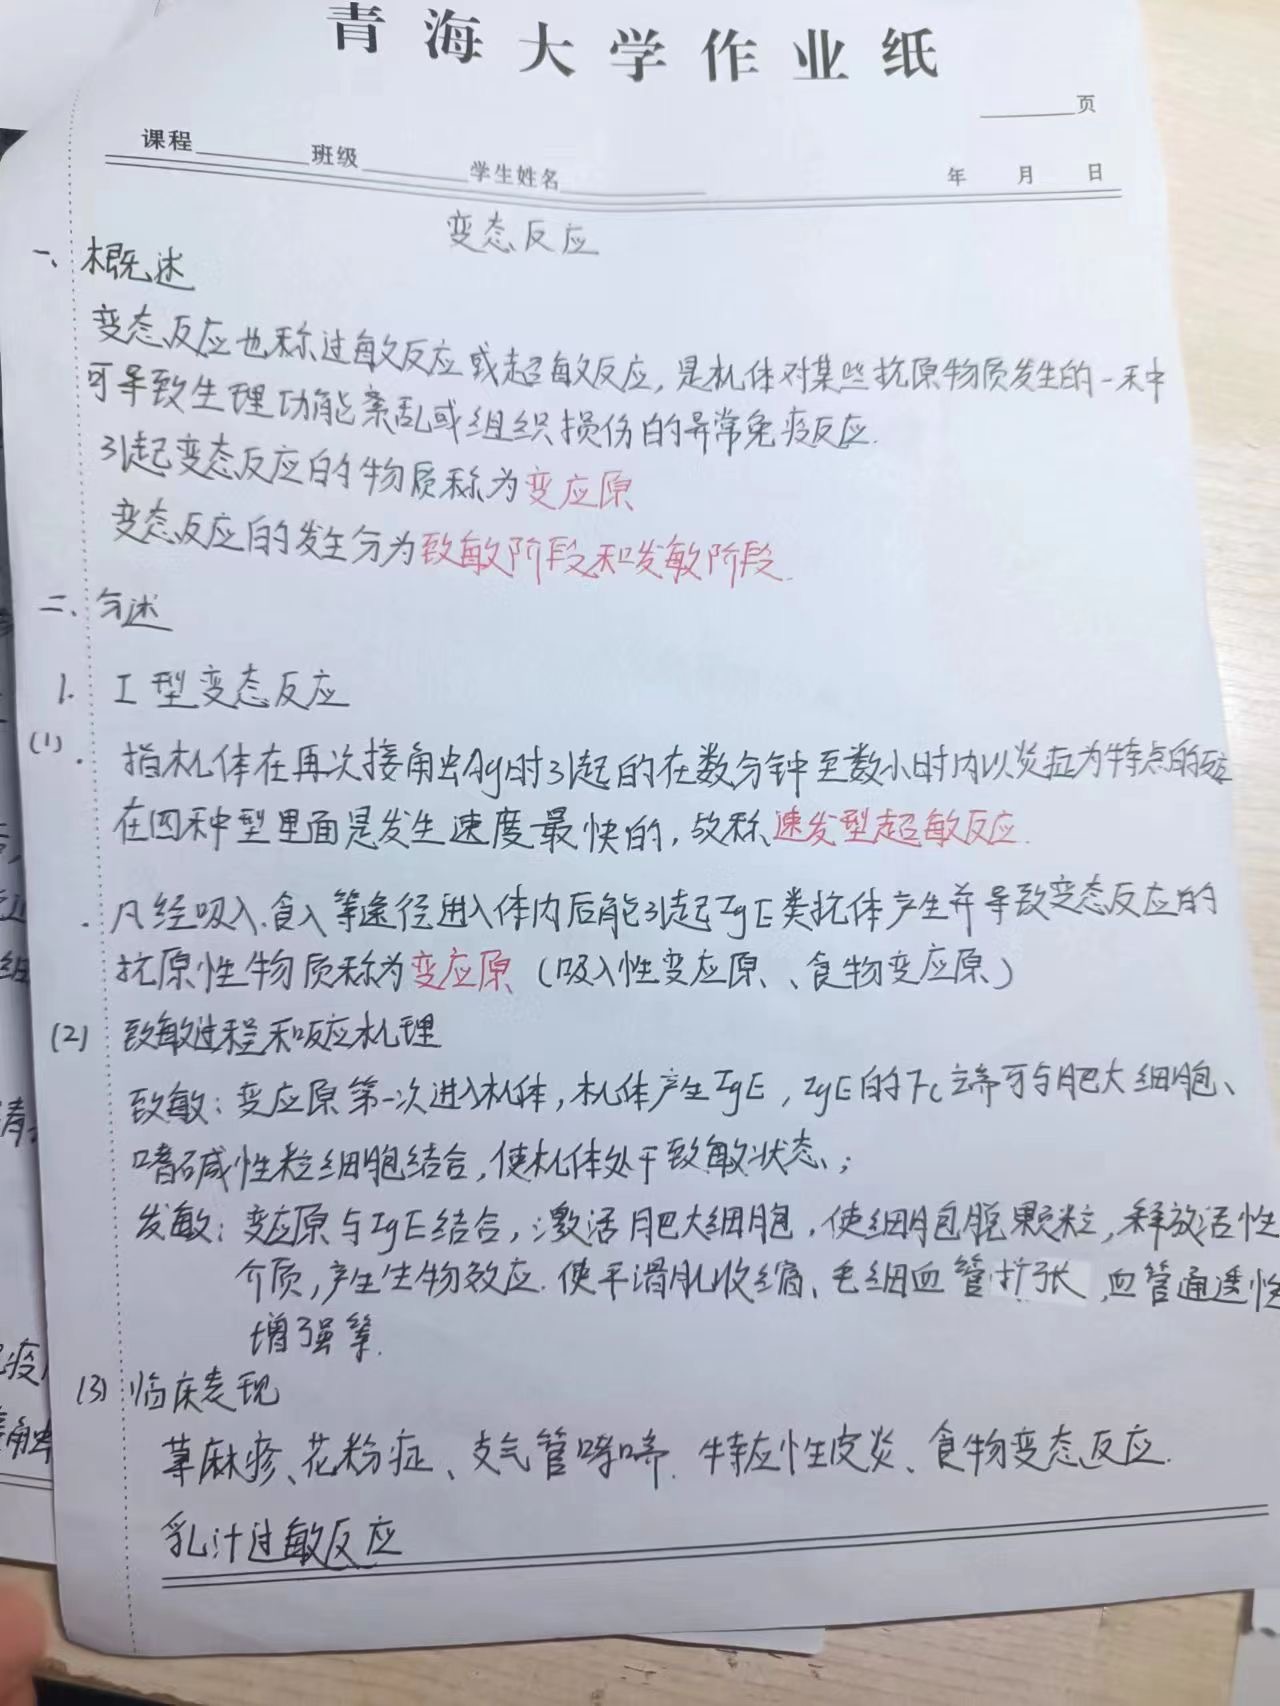 青海大学作业纸
页
课程 班级 学生姓名 年 月 日
变态反应
一、概述
变态反应也称过敏反应或超敏反应,是机体对某些抗原物质发生的一种
可导致生理功能紊乱或组织损伤的异常免疫反应.
引起变态反应的物质称为变应原
变态反应的发生分为致敏阶段和发敏阶段.
二、分述
1. I型变态反应
(1). 指机体在再次接触Ag时引起的在数分钟至数小时内以炎症为特点的
在四种型里面是发生速度最快的,故称速发型超敏反应.
. 凡经吸入.食入等途径进入体内后能引起IgE类抗体产生并导致变态反应的
抗原性物质称为变应原(吸入性变应原、、食物变应原)
(2) 致敏过程和反应机理
致敏:变应原第一次进入机体,机体产生IgE,IgE的Fc端可与肥大细胞、
嗜碱性粒细胞结合,使机体处于致敏状态、;
发敏:变应原与IgE结合,激活肥大细胞,使细胞脱颗粒,释放活性
介质,产生生物效应.使平滑肌收缩、毛细血管扩张,血管通透性
增强等.
(3) 临床表现
荨麻疹、花粉症、支气管哮喘.特应性皮炎、食物变态反应.
乳汁过敏反应